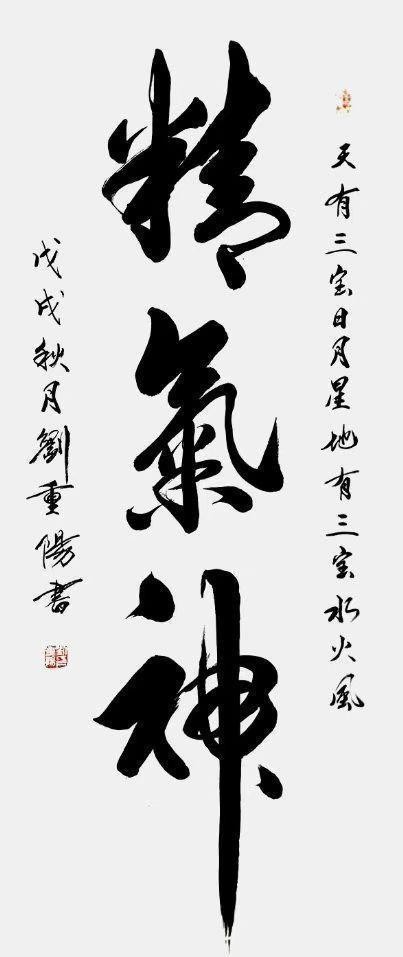 天有三宝日月星地有三宝水火風
精氣神
戊戌秋月劉重陽書